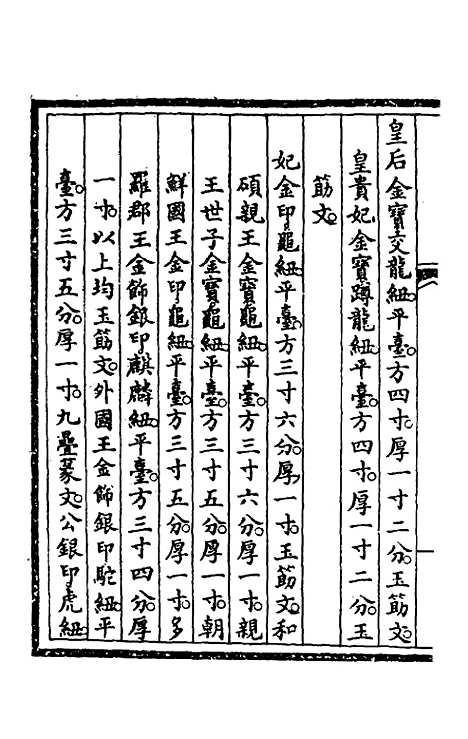 皇后金寶交龍紐平臺方四寸厚一寸二分玉筯文
皇貴妃金寶蹲龍紐平臺方四寸厚一寸二分玉
筯文
妃金印龜紐平臺方三寸六分厚一寸玉筯文和
碩親王金寶龜紐平臺方三寸六分厚一寸親
王世子金寶龜紐平臺方三寸五分厚一寸朝
鮮國王金印龜紐平臺方三寸五分厚一寸多
羅郡王金飾銀印麒麟紐平臺方三寸四分厚
一寸以上均玉筯文外國王金飾銀印駝紐平
臺方三寸五分厚一寸九疊篆文公銀印虎紐